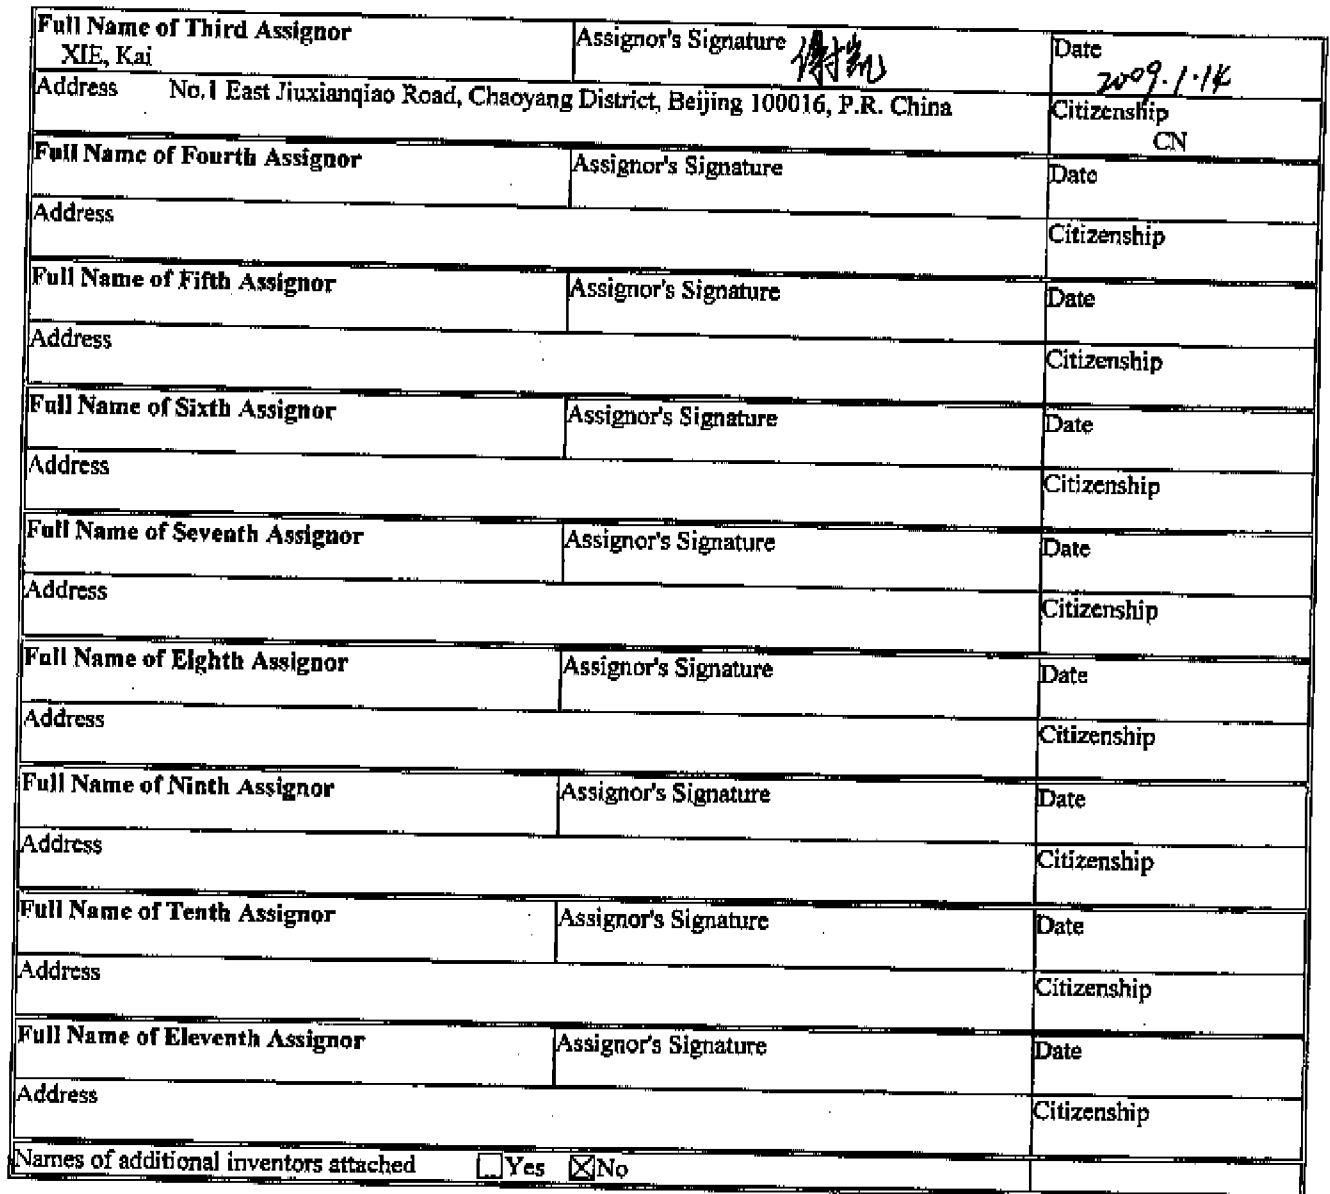 Full Name of Third Assignor Assignor's Signature 谢凯 Date
XIE, Kai 2009.1.14
Address No.1 East Jiuxianqiao Road, Chaoyang District, Beijing 100016, P.R. China Citizenship
CN
Full Name of Fourth Assignor Assignor's Signature Date
Address Citizenship
Full Name of Fifth Assignor Assignor's Signature Date
Address Citizenship
Full Name of Sixth Assignor Assignor's Signature Date
Address Citizenship
Full Name of Seventh Assignor Assignor's Signature Date
Address Citizenship
Full Name of Eighth Assignor Assignor's Signature Date
Address Citizenship
Full Name of Ninth Assignor Assignor's Signature Date
Address Citizenship
Full Name of Tenth Assignor Assignor's Signature Date
Address Citizenship
Full Name of Eleventh Assignor Assignor's Signature Date
Address Citizenship
Names of additional inventors attached ☐Yes ☒No